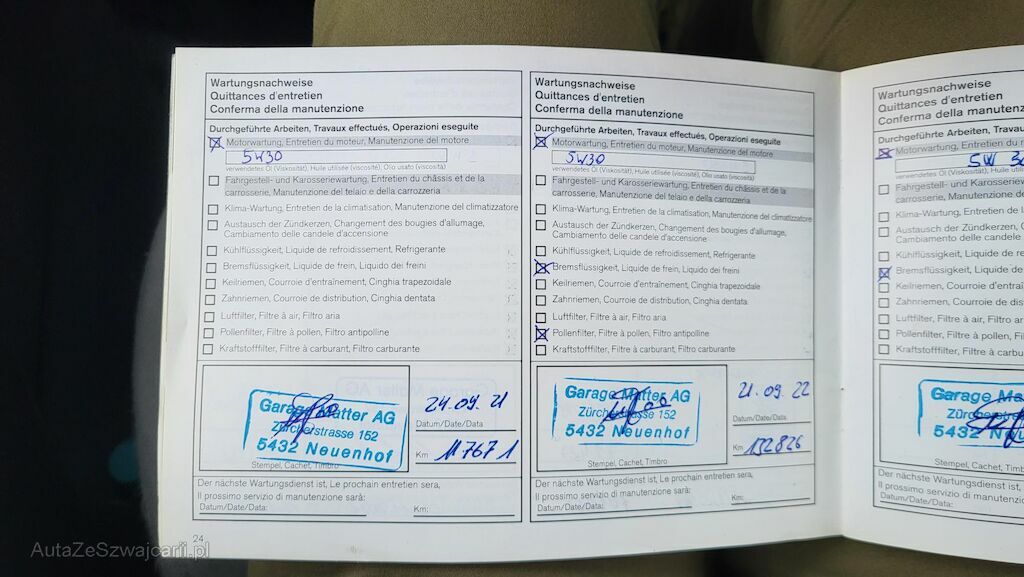 Wartungsnachweise
Quittances d'entretien
Conferma della manutenzione
Durchgeführte Arbeiten, Travaux effectués, Operazioni eseguite
Motorwartung, Entretien du moteur, Manutenzione del motore
5W30
verwendetes Öl (Viskosität), Huile utilisée (viscosité), Olio usato (viscosità)
Fahrgestell- und Karosseriewartung, Entretien du châssis et de la
carrosserie, Manutenzione del telaio e della carrozzeria
Klima-Wartung, Entretien de la climatisation, Manutenzione del climatizzatore
Austausch der Zündkerzen, Changement des bougies d'allumage,
Cambiamento delle candele d'accensione
Kühlflüssigkeit, Liquide de refroidissement, Refrigerante
Bremsflüssigkeit, Liquide de frein, Liquido dei freini
Keilriemen, Courroie d'entraînement, Cinghia trapezoidale
Zahnriemen, Courroie de distribution, Cinghia dentata
Luftfilter, Filtre à air, Filtro aria
Pollenfilter, Filtre à pollen, Filtro antipolline
Kraftstofffilter, Filtre à carburant, Filtro carburante
Garage Matter AG
Zürcherstrasse 152
5432 Neuenhof
Stempel, Cachet, Timbro
24.09.21
Datum/Date/Data
Km
117671
Der nächste Wartungsdienst ist, Le prochain entretien sera,
Il prossimo servizio di manutenzione sarà:
Datum/Date/Data:
Km:
24
Wartungsnachweise
Quittances d'entretien
Conferma della manutenzione
Durchgeführte Arbeiten, Travaux effectués, Operazioni eseguite
Motorwartung, Entretien du moteur, Manutenzione del motore
5W30
verwendetes Öl (Viskosität), Huile utilisée (viscosité), Olio usato (viscosità)
Fahrgestell- und Karosseriewartung, Entretien du châssis et de la
carrosserie, Manutenzione del telaio e della carrozzeria
Klima-Wartung, Entretien de la climatisation, Manutenzione del climatizzatore
Austausch der Zündkerzen, Changement des bougies d'allumage,
Cambiamento delle candele d'accensione
Kühlflüssigkeit, Liquide de refroidissement, Refrigerante
Bremsflüssigkeit, Liquide de frein, Liquido dei freini
Keilriemen, Courroie d'entraînement, Cinghia trapezoidale
Zahnriemen, Courroie de distribution, Cinghia dentata
Luftfilter, Filtre à air, Filtro aria
Pollenfilter, Filtre à pollen, Filtro antipolline
Kraftstofffilter, Filtre à carburant, Filtro carburante
Garage Matter AG
Zürcherstrasse 152
5432 Neuenhof
Stempel, Cachet, Timbro
21.09.22
Datum/Date/Data
Km
152826
Der nächste Wartungsdienst ist, Le prochain entretien sera,
Il prossimo servizio di manutenzione sarà:
Datum/Date/Data:
Km:
Wartungsnachweise
Quittances d'entretien
Conferma della manutenzione
Durchgeführte Arbeiten, Travaux
Motorwartung, Entretien du moteur,
5W 30
verwendetes Öl (Viskosität), Huile
Fahrgestell- und Karosseriewartung
carrosserie, Manutenzione del
Klima-Wartung, Entretien de la
Austausch der Zündkerzen,
Cambiamento delle candele
Kühlflüssigkeit, Liquide de
Bremsflüssigkeit, Liquide
Keilriemen, Courroie
Zahnriemen, Courroie de
Luftfilter, Filtre à air
Pollenfilter, Filtre à
Kraftstofffilter, Filtre à
Garage
5432
Stempel,
Der nächste Wartungsdienst
Il prossimo servizio di
Datum/Date/Data:
AutaZeSzwajcarii.pl